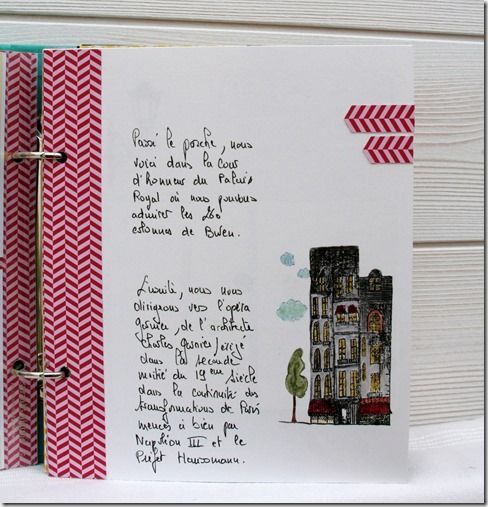 Passé le porche, nous
voici dans la cour
d'honneur du Palais
Royal où nous pouvons
admirer les 260
colonnes de Buren.
Ensuite, nous nous
dirigeons vers l'opéra
garnier, de l'architecte
Charles garnier, érigé
dans la seconde
moitié du 19ème siècle
dans la continuité des
transformations de Paris
menées à bien par
Napoléon III et le
Préfet Haussmann.